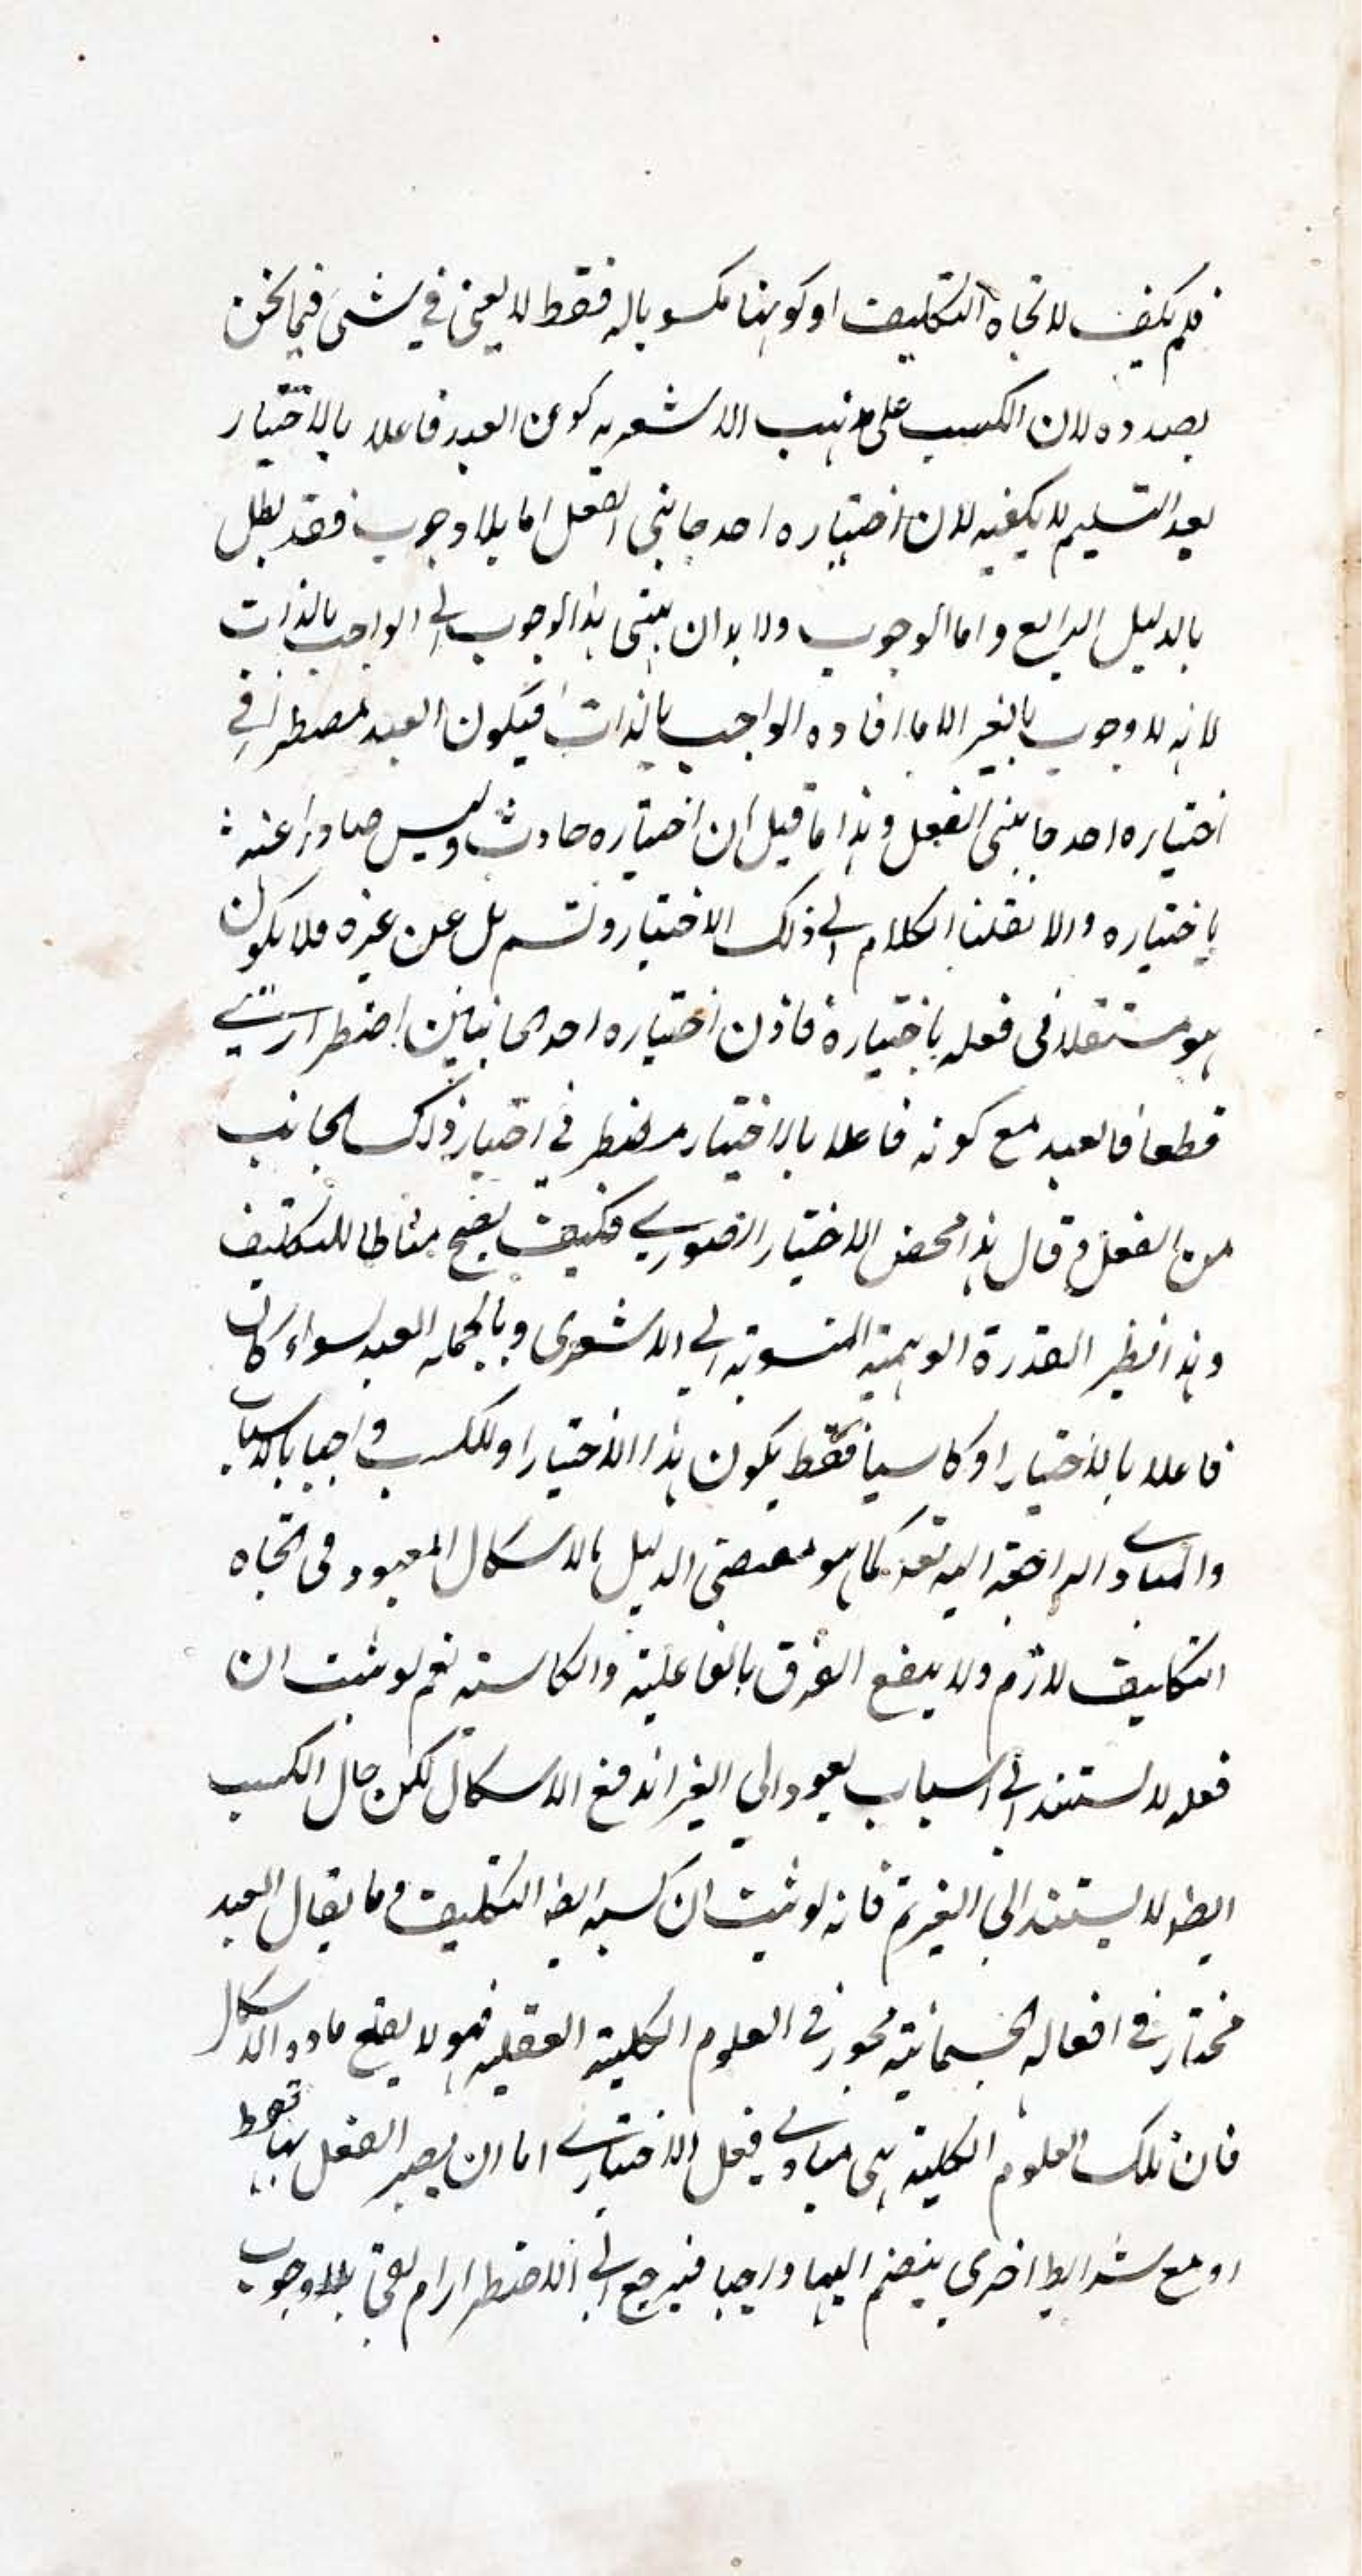 فلم يكف لاتجاه التكليف او كونها مكسوبا له فقط لا يغنى في شئ فيما نحن
بصدده لان الكسب على مذهب الاشعريه كون العبد فاعلا بالاختيار
بعد التسليم لا يكفيه لان اختياره احد جانبى الفعل اما بلا وجوب فقد بطل
بالدليل الرابع و اما الوجوب ولا بد ان ينتهى هذا الوجوب الى الواجب بالذات
لانه لا وجوب بالغير الا ما افاده الواجب بالذات فيكون العبد مضطرا في
اختياره احد جانبى الفعل و هذا ما قيل ان اختياره حادث وليس صادرا عنه
باختياره والا نقلنا الكلام الى ذلك الاختيار و تسلسل بل عن غيره فلا يكون
هو مستقلا فى فعله باختياره فاذن اختياره احد الجانبين اضطراري
قطعا فالعبد مع كونه فاعلا بالاختيار مضطر في اختيار ذلك الجانب
من الفعل و قال هذا محض الاختيار الصوري فكيف يصح مناطا للتكليف
و هذا نظير القدرة الوهمية المنسوبة الى الاشعرى و بالجمله العبد سواء كان
فاعلا بالاختيار او كاسبا فقط يكون هذا الاختيار او للكسب واجبا بالاسباب
والمبادي الراجعة اليه تعه كما هو مقتضى الدليل فالاشكال المعهود فى اتجاه
التكليف لازم ولا ينفع الفرق بالفاعلية والكاسبية نعم لو ثبت ان
فعله لا يستند الى اسباب يعود الى الغير اندفع الاشكال لكن حال الكسب
ايضا لا يستند الى الغير تم فانه لو ثبت ان كسبه ايضا التكليف و ما يقال العبد
مختار في افعاله الجسمانية مجبور في العلوم الكلية العقليه فهو لا يقلع مادة الاشكال
فان تلك العلوم الكلية هى مبادي فعل الاختياري اما ان يصير الفعل بها فقط
او مع شرايط اخرى ينضم اليها واجبا فيرجع الى الاضطرار ام بقى بلا وجوب